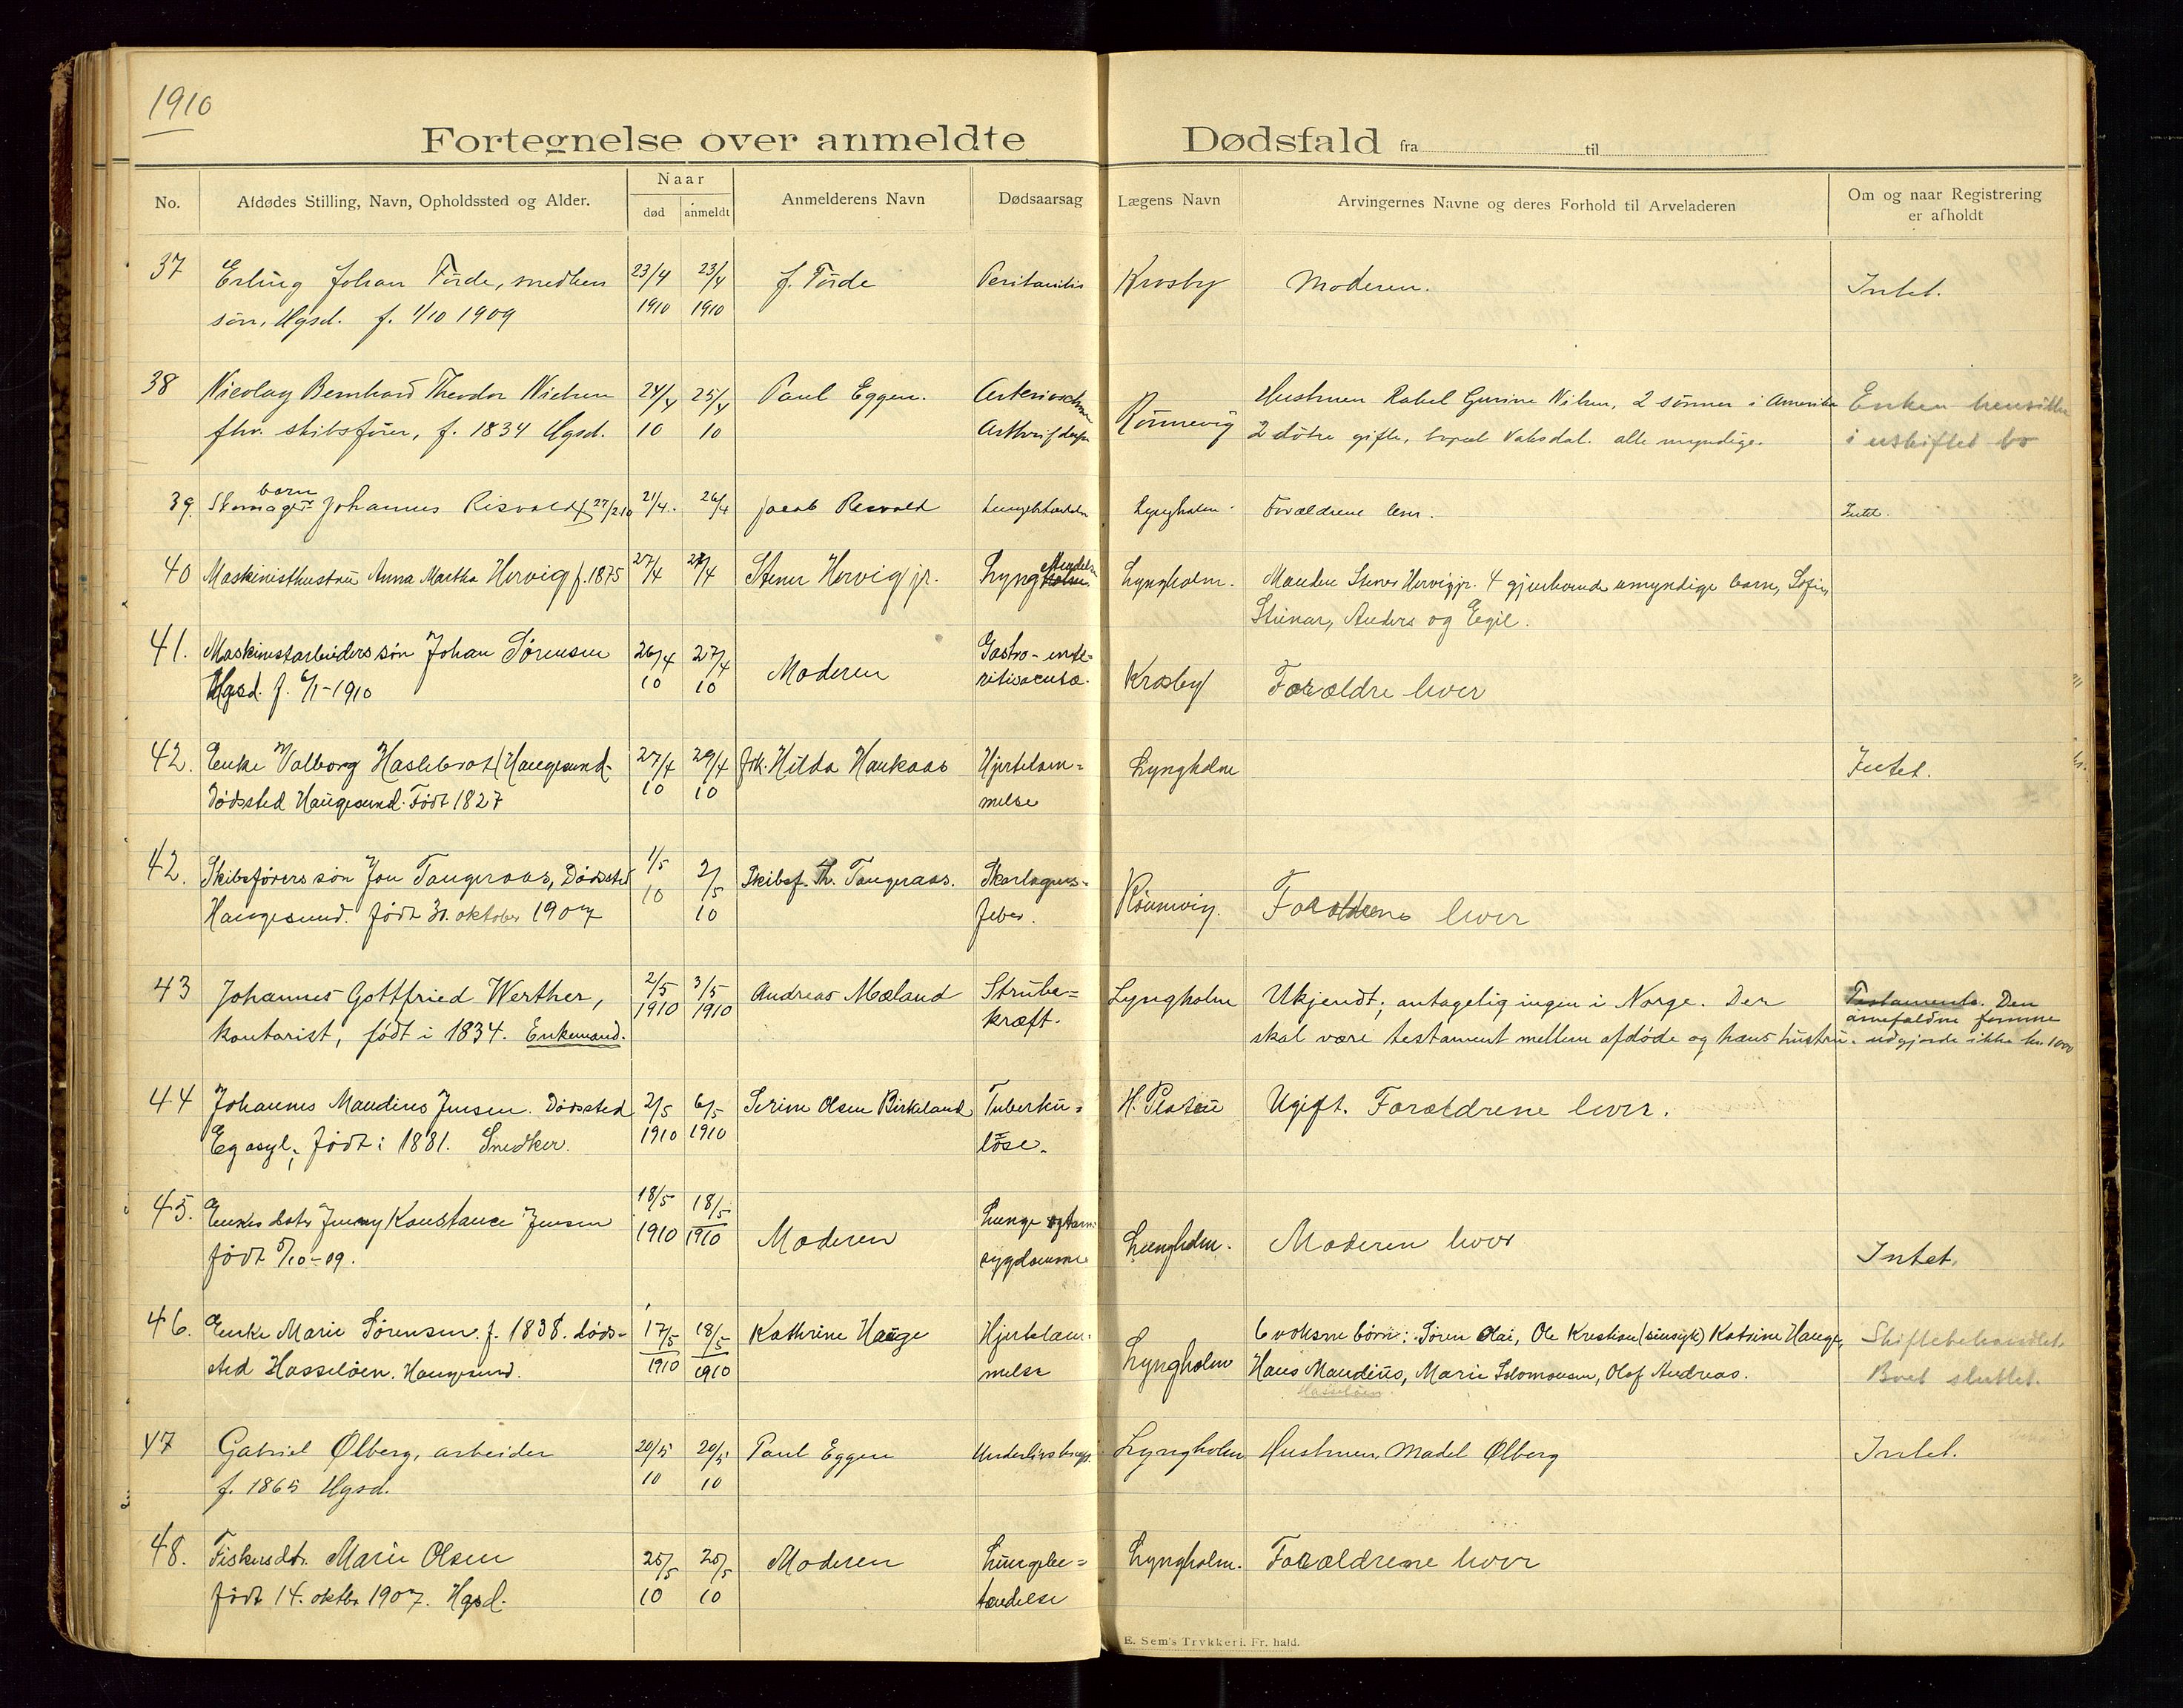 1910
Fortegnelse over anmeldte Dødsfald fra til
No. Afdødes Stilling, Navn, Opholdssted og Alder. Naar Anmelderens Navn Dødsaarsag Lægens Navn Arvingernes Navne og deres Forhold til Arveladeren Om og naar Registrering
død anmeldt er afholdt
37 Erling Johan Førde, snedkers 23/4 23/4 J. Førde Peritonitis Krosby Moderen. Intet.
søn, Hgsd. f. 1/10 1909 1910 1910
38 Nicolay Bernhard Theodor Nielsen 24/4 25/4 Paul Eggen. Hustruen Rakel Gurine Nilsen, 2 sønner i Amerika Enken hensidder
fhv. skibsfører, f. 1834 Hgsd. 10 10 Rønnevig 2 døtre gifte, bopæl Vaksdal. alle myndige. i uskiftet bo
39. Skomager barn Johannes Risvold f 27/2 10 21/4. 26/4 Jacob Risvold Lyngholm. Forældrene lever. Intet.
40 Maskinisthustru Anna Martha Hervig f. 1875 27/4 27/4 Stener Hervig jr. Lyngholm. Manden Stener Hervig jr. 4 gjenlevende umyndige barn, Sofie,
Steinar, Anders og Egil.
41. Maskinistarbeiders søn Johan Sørensen 26/4 27/4 Moderen Gastro-ente=
Hgsd. f. 6/1-1910 10 10 ritis acuta. Krosby Forældre lever
42. Enke Valborg Haslebrot Haugesund. 27/4 29/4 frk. Hilda Haukaas Hjertelam= Lyngholm Intet.
Dødssted Haugesund. Født 1827 10 10 melse
42. Skibsførers søn Jon Tangeraas, Dødssted 1/5 2/5 Skibsf. Th. Tangeraas. Skarlagens=
Haugesund. født 30. oktober 1907 10 10 feber. Rønnevig. Forældrene lever
43 Johannes Gottfried Werther, 2/5 3/5 Andreas Mæland Strube= Lyngholm Ukjendt; antagelig ingen i Norge. Der Testamente. Den
kontorist, født i 1834. Enkemand. 1910 1910 kræft. skal være testament mellem afdøde og hans hustru. udgjorde ikke kr. 1000
44 Johannes Maudius Jensen. Dødssted 2/5 6/5 Serine Olsen Birkeland Tuberku= H. Platou Ugift. Forældrene lever.
Eg asyl, født i 1881. Snedker. 1910 1910 løse.
45. Enkes dater Jenny Konstance Jensen 18/5 18/5 Moderen Lunge og tarm Lyngholm. Moderen lever Intet.
født 5/10-09. 1910 1910 sygdomme
46. Enke Marie Sørensen. f. 1838. døds= 17/5 18/5 Kathrine Hauge Hjertelam= Lyngholm 6 voksne børn: Søren Olai, Ole Kristian (sinsyk) Katrine Hauge, Skiftebehandlet.
sted Hasseløen. Haugesund. 1910 1910 melse Hans Maudius, Marie Salomonsen, Olaf Andreas. Boet sluttet.
Hasseløen
47 Gabriel Ølberg, arbeider 20/5 20/5 Paul Eggen Lyngholm Hustruen, Madel Ølberg Intet.
f. 1865 Hgsd. 10 10
48. Fiskersdtr. Marie Olsen 25/5 25/5 Moderen Lungebe= Lyngholm. Forældrene lever
født 14. oktbr. 1907. Hgsd. 10 10 tændelse
E. Sem's Trykkeri. Fr. hald.